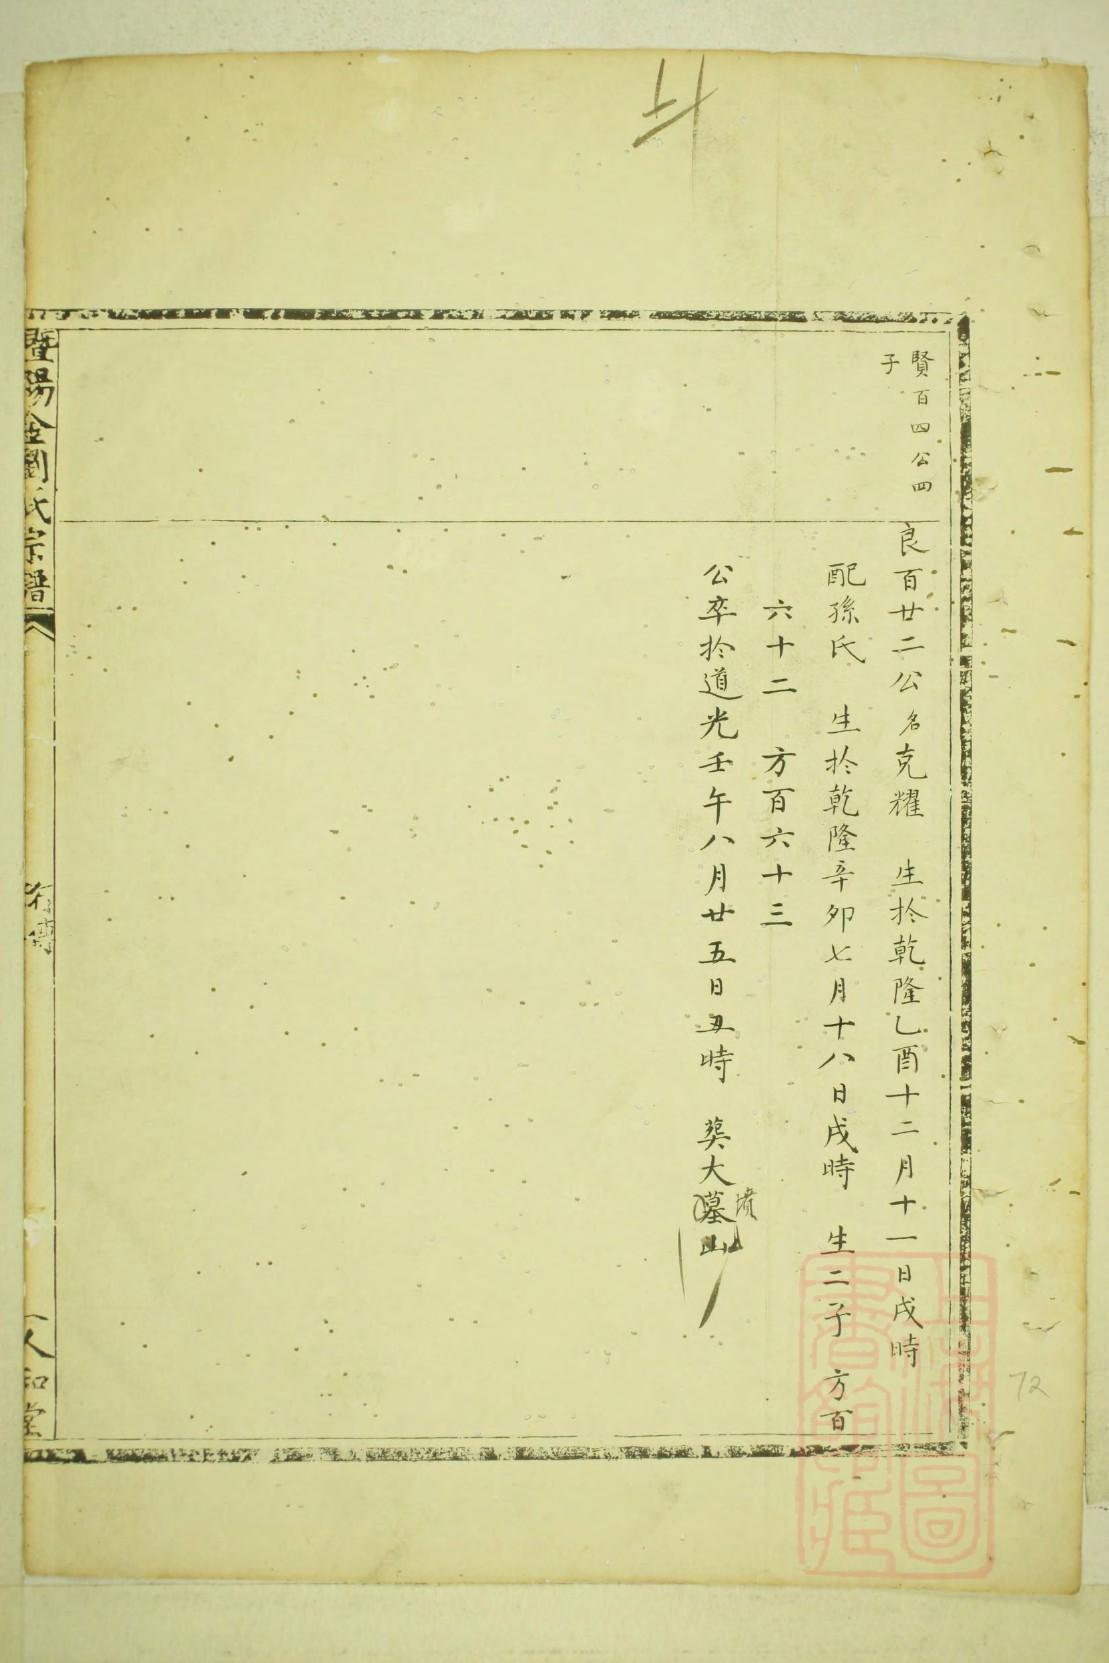 賢百四公四
子
良百廿二公名克耀　生於乾隆乙酉十二月十一日戌時
配孫氏　生於乾隆辛卯七月十八日戌時　生二子　方百
六十二　方百六十三
公卒於道光壬午八月廿五日丑時　葬大墓山
墳
暨陽金劉氏宗譜
行傳
人和堂
上海圖
書館藏
72